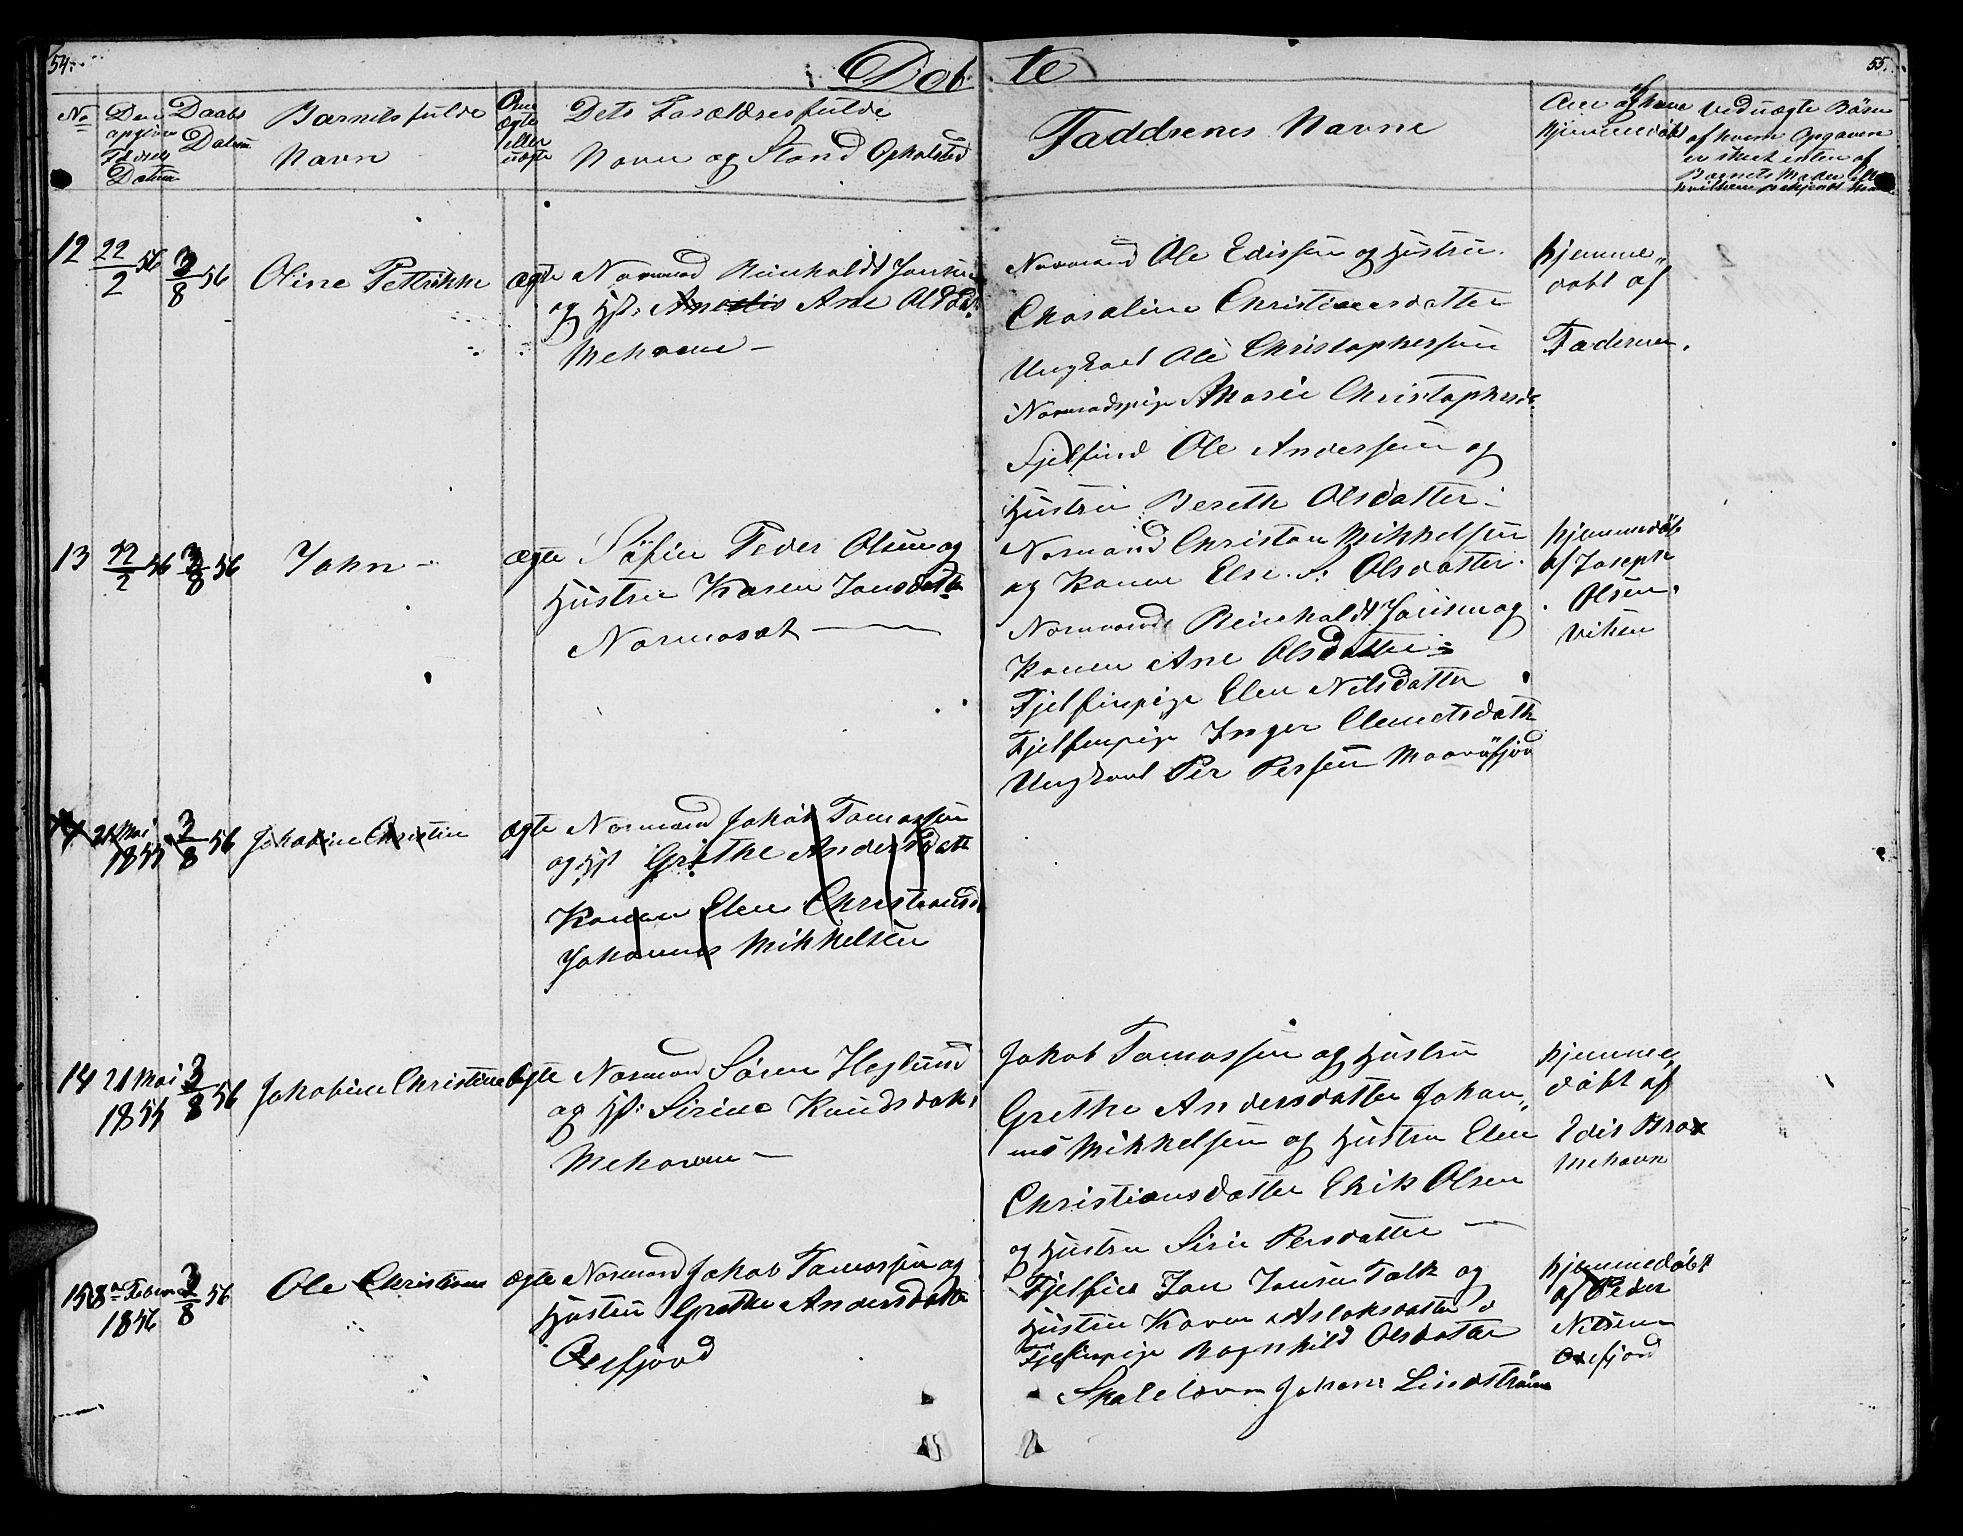 54.
Døb
te
55.
No
Den
opgivne
Fødsels
Datum
Daabs
Datum
Barnets fulde
Navn
Om
ægte
eller
uægte
Dets Forældres fulde
Navn og Stand Opholsted
Faddrenes Navne
af
hjemmedøbt
Ved uægte Børn
af hvem Opgaven
er skeet enten af
Barnets Moder
12
22/2 56
3/8 56
Oline Pettrikke
ægte
Normand Reinholdt Jonsen
og Hst: Anedis Ane Ols
Mehavn —
Normand Ole Edissen og Hustru
Christiansdatter
Ungkarl Ole Christophersen
Normadspige Marie Christophersd.
Fjelfind Ole Anderssen og
Hustru Bereth Olsdatter
hjemme„
døbt af
Faderen.
13
22/2 56
3/8 56
John —
ægte
Söfin Peder Olsen og
Hustru Karen Jonsdatte
Normaset —
Normand Christan Mikkelsen
og Konen Else. S: Olsdatter.
Normand Reinholdt Jonsen og
Konen Ane Olsdatter
Fjelfinpige Elen Nilsdatter
Fjelfinpige Inger Clemetsdatte
Ungkarl Per Persen
hjemmedøbt
af Joseph
Olsen.
Viken
14
21 Mai
1855
3/8 56
Jakobine Christine
ægte
Normand Jakob Tomassen
og Hst Grethe Andersdatt
Konen Elen Christiansd
Johannes Mikkelsen
14
21 Mai
1855
3/8 56
Jakobine Christine
ægte
Normand Sören Heglund
og Hst: Sirine Knudsdat.
Mehavn —
Jakob Tomassen og Hustru
Grethe Andersdatter Johan„
nes Mikkelsen og Hustru Elen
Christiansdatter Erik Olsen
og Hustru Siri Persdatter —
hjemme„
døbt af
Edis Brox
Mehavn
15
8de Febru
1856
3/8 56
Ole Christian
ægte
Normand Jakob Tomassen og
Hustru Grethe Andersdatte
Oxefjord
Fjelfin Jon Jonsen Falk og
Hustru Karen Aslaksdatter
Fjelfinpige Ragnhild Olsdatter
Johans Lindstrøm
hjemmedøbt
af Peder
Nilsen
Oxefjord